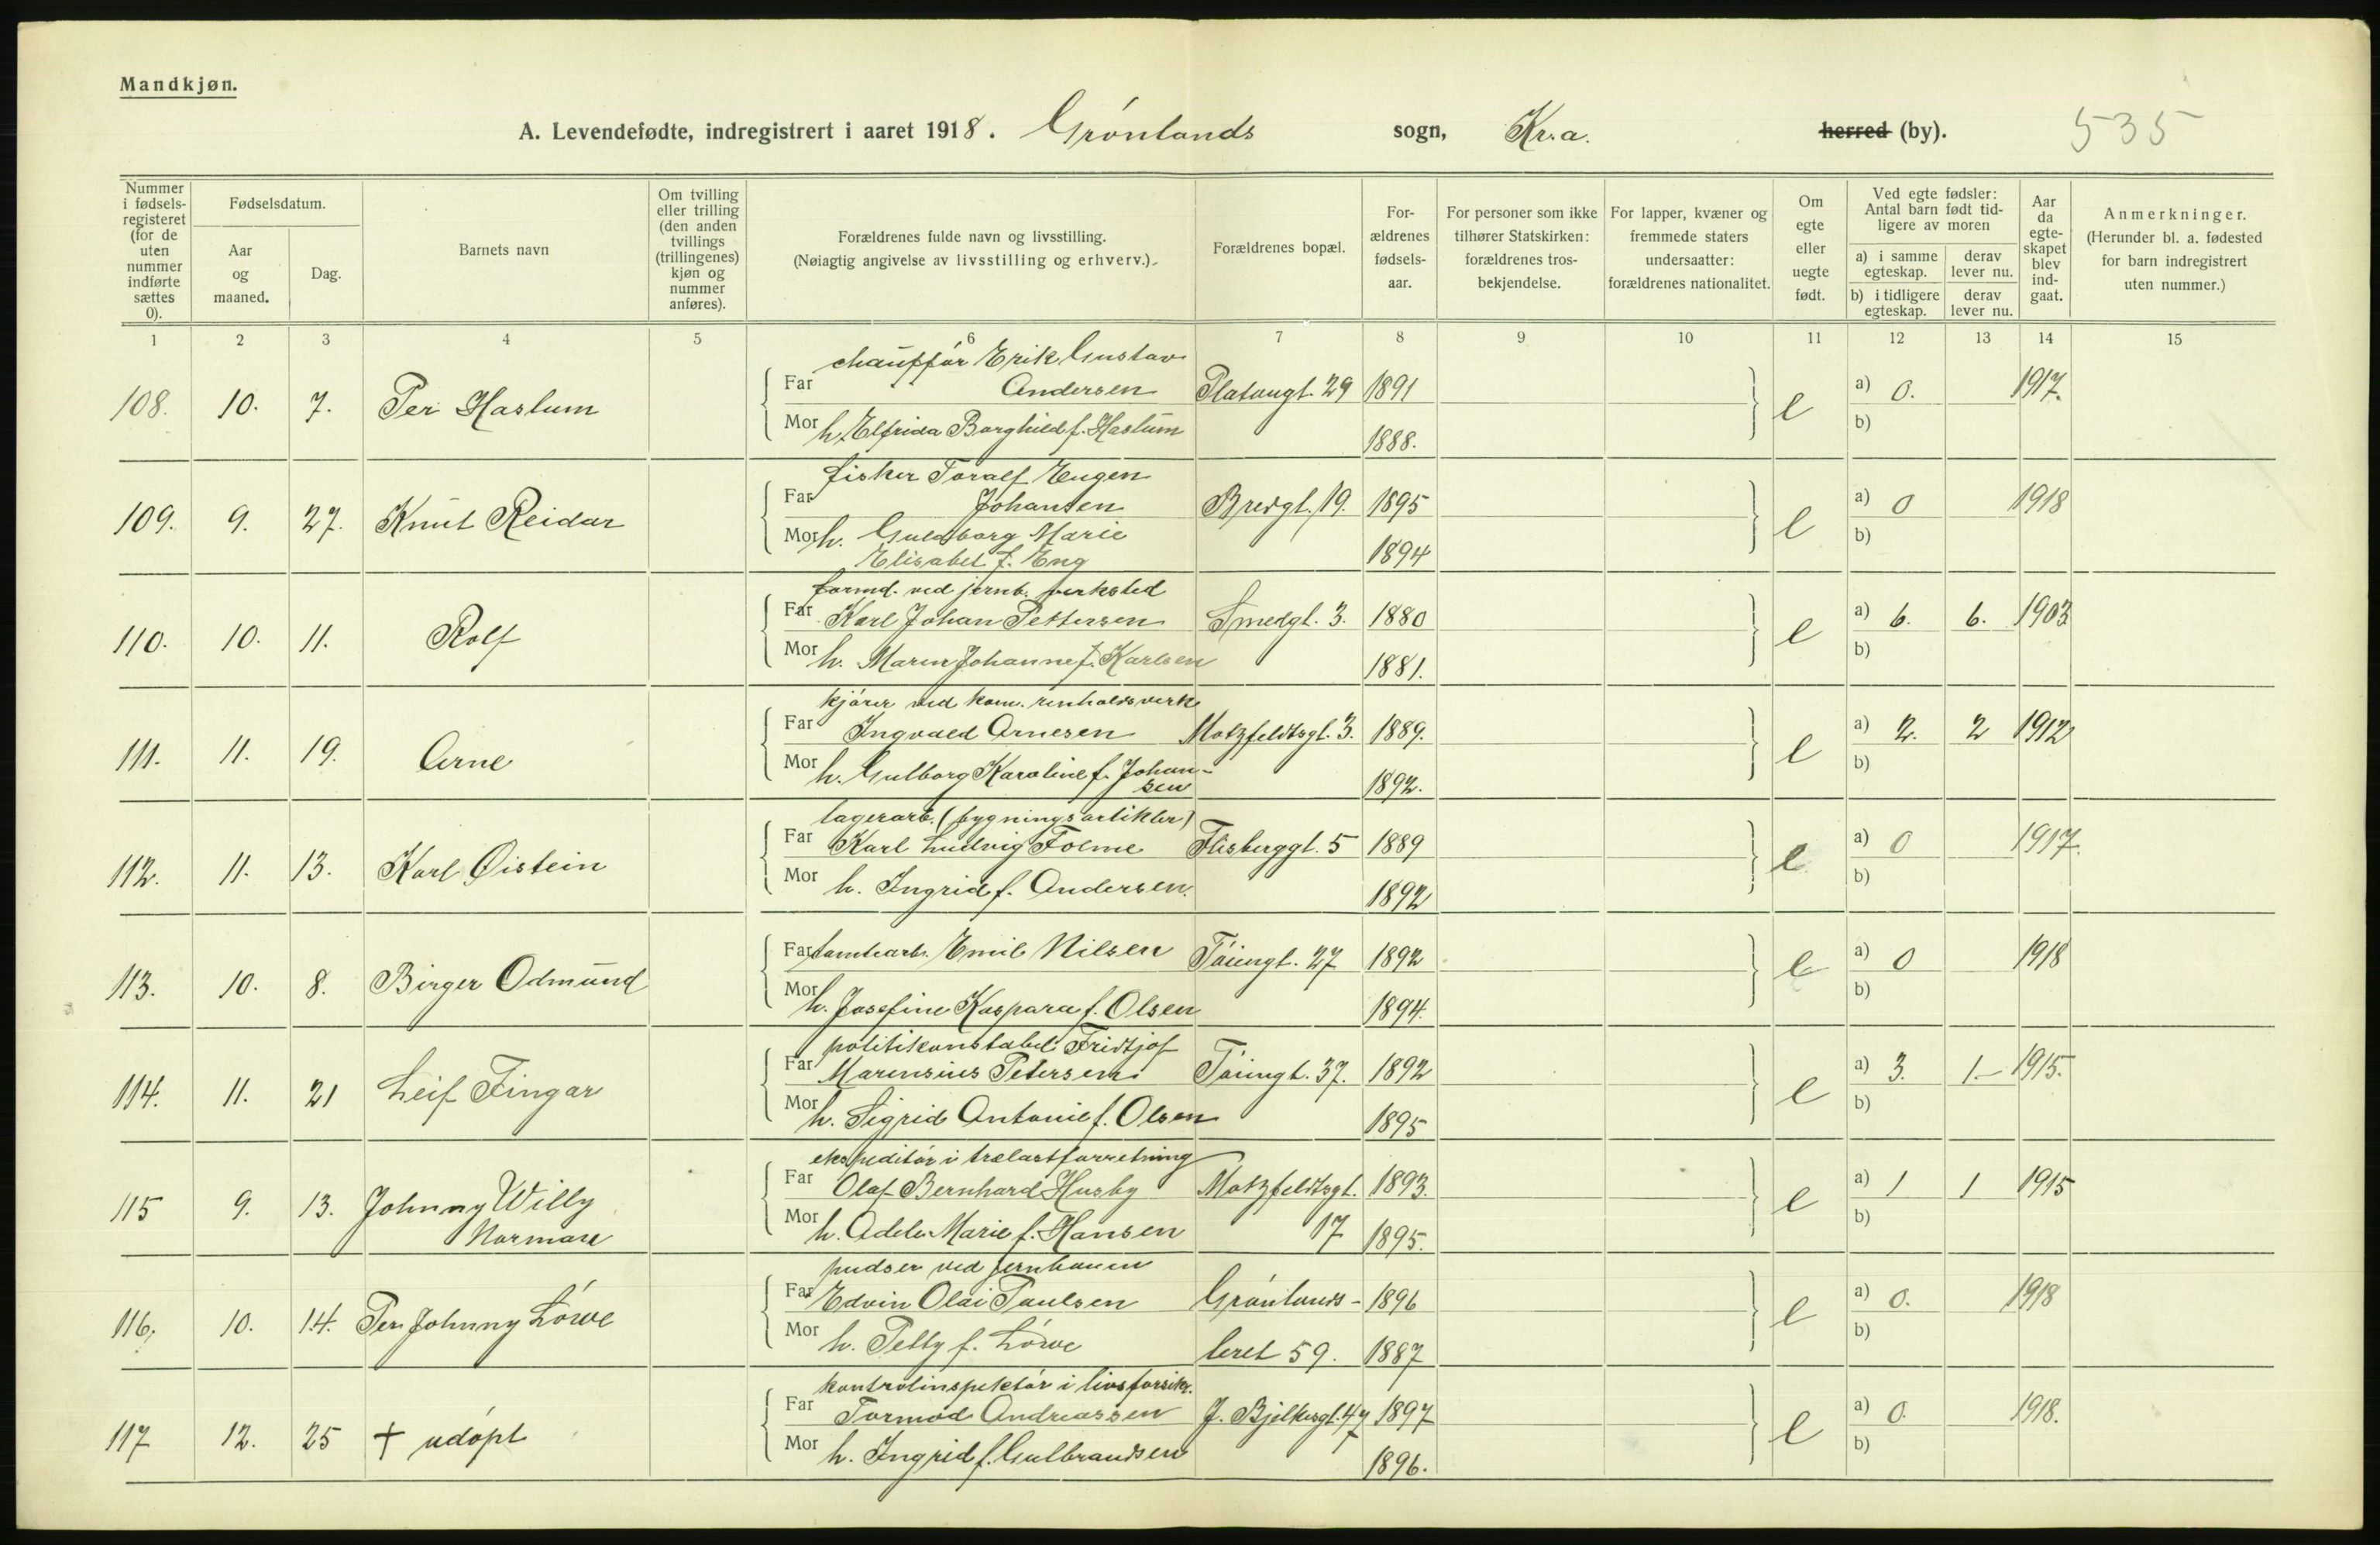 Mandkjøn.
A. Levendefødte, indregistrert i aaret 1918. Grönlands sogn, Kr.a. herred (by). 535
Nummer i fødsels-registeret (for de uten nummer indførte sættes 0).
Fødselsdatum.
Aar og maaned.
Dag.
Barnets navn
Om tvilling eller trilling (den anden tvillings (trillingenes) kjøn og nummer anføres).
Forældrenes fulde navn og livsstilling.
(Nøiagtig angivelse av livsstilling og erhverv.)
Forældrenes bopæl.
For-ældrenes fødsels-aar.
For personer som ikke tilhører Statskirken: forældrenes tros-bekjendelse.
For lapper, kvæner og fremmede staters undersaatter: forældrenes nationalitet.
Om egte eller uegte født.
Ved egte fødsler: Antal barn født tid-ligere av moren
a) i samme egteskap.
derav lever nu.
b) i tidligere egteskap.
derav lever nu.
Aar da egte-skapet blev ind-gaat.
Anmerkninger.
(Herunder bl. a. fødested for barn indregistrert uten nummer.)
1 2 3 4 5 6 7 8 9 10 11 12 13 14 15
chaufför Erik Gustav
108. 10. 7. Per Haslum Far Andersen Platougt. 29 1891 e a) 0. 1917.
Mor h. Elfrida Borghild f. Haslum 1888. b)
fisker Toralf Eugen
109. 9. 27. Knut Reidar Far Johansen Bredgt. 19. 1895 e a) 0 1918
Mor h. Guldborg Marie
Elisabet f. Eng 1894 b)
formd. ved jernb. verksted
110. 10. 11. Rolf Far Karl Johan Pettersen Smedgt. 3. 1880 e a) 6. 6. 1903
Mor h. Maren Johanne f. Karlsen 1881. b)
kjörer ved kom. renholdsverk
111. 11. 19. Arne Far Ingvald Arnesen Motzfeldtsgt. 3. 1889. e a) 2. 2 1912
Mor h. Gulborg Karoline f. Johan-
sen 1892. b)
lagerarb. (bygningsartikler)
112. 11. 13. Karl Øistein Far Karl Ludvig Folme Flisberggt. 5 1889 e a) 0 1917.
Mor h. Ingrid f. Andersen. 1892 b)
113. 10. 8. Birger Odmund Far tomtearb. Emil Nilsen Töiengt. 27 1892 e a) 0 1918
Mor h. Josefine Kaspara f. Olsen 1894. b)
politikonstabel Fridtjof
114. 11. 21 Leif Fingar Far Marensius Petersen Töiengt. 37. 1892 e a) 3. 1.- 1915.
Mor h. Sigrid Antonie f. Olsen 1895 b)
ekspeditör i trælastforretning
115 9. 13. Johnny Willy Far Olaf Bernhard Husby Motzfeldtsgt. 1893. e a) 1 1 1915
Norman Mor h. Adele Marie f. Hansen 17 1895. b)
pudser ved jernbanen
116. 10. 14. Per Johnny Löwe Far Edvin Olai Paulsen Grönlands- 1896 e a) 0. 1918
Mor h. Petty f. Löwe leret 59. 1887 b)
kontrolinspektör i livsforsikr.
117 12. 25 + udöpt Far Tormod Andreassen J. Bjelkesgt. 47 1897 e a) 0. 1918.
Mor h. Ingrid f. Gulbrandsen 1896. b)